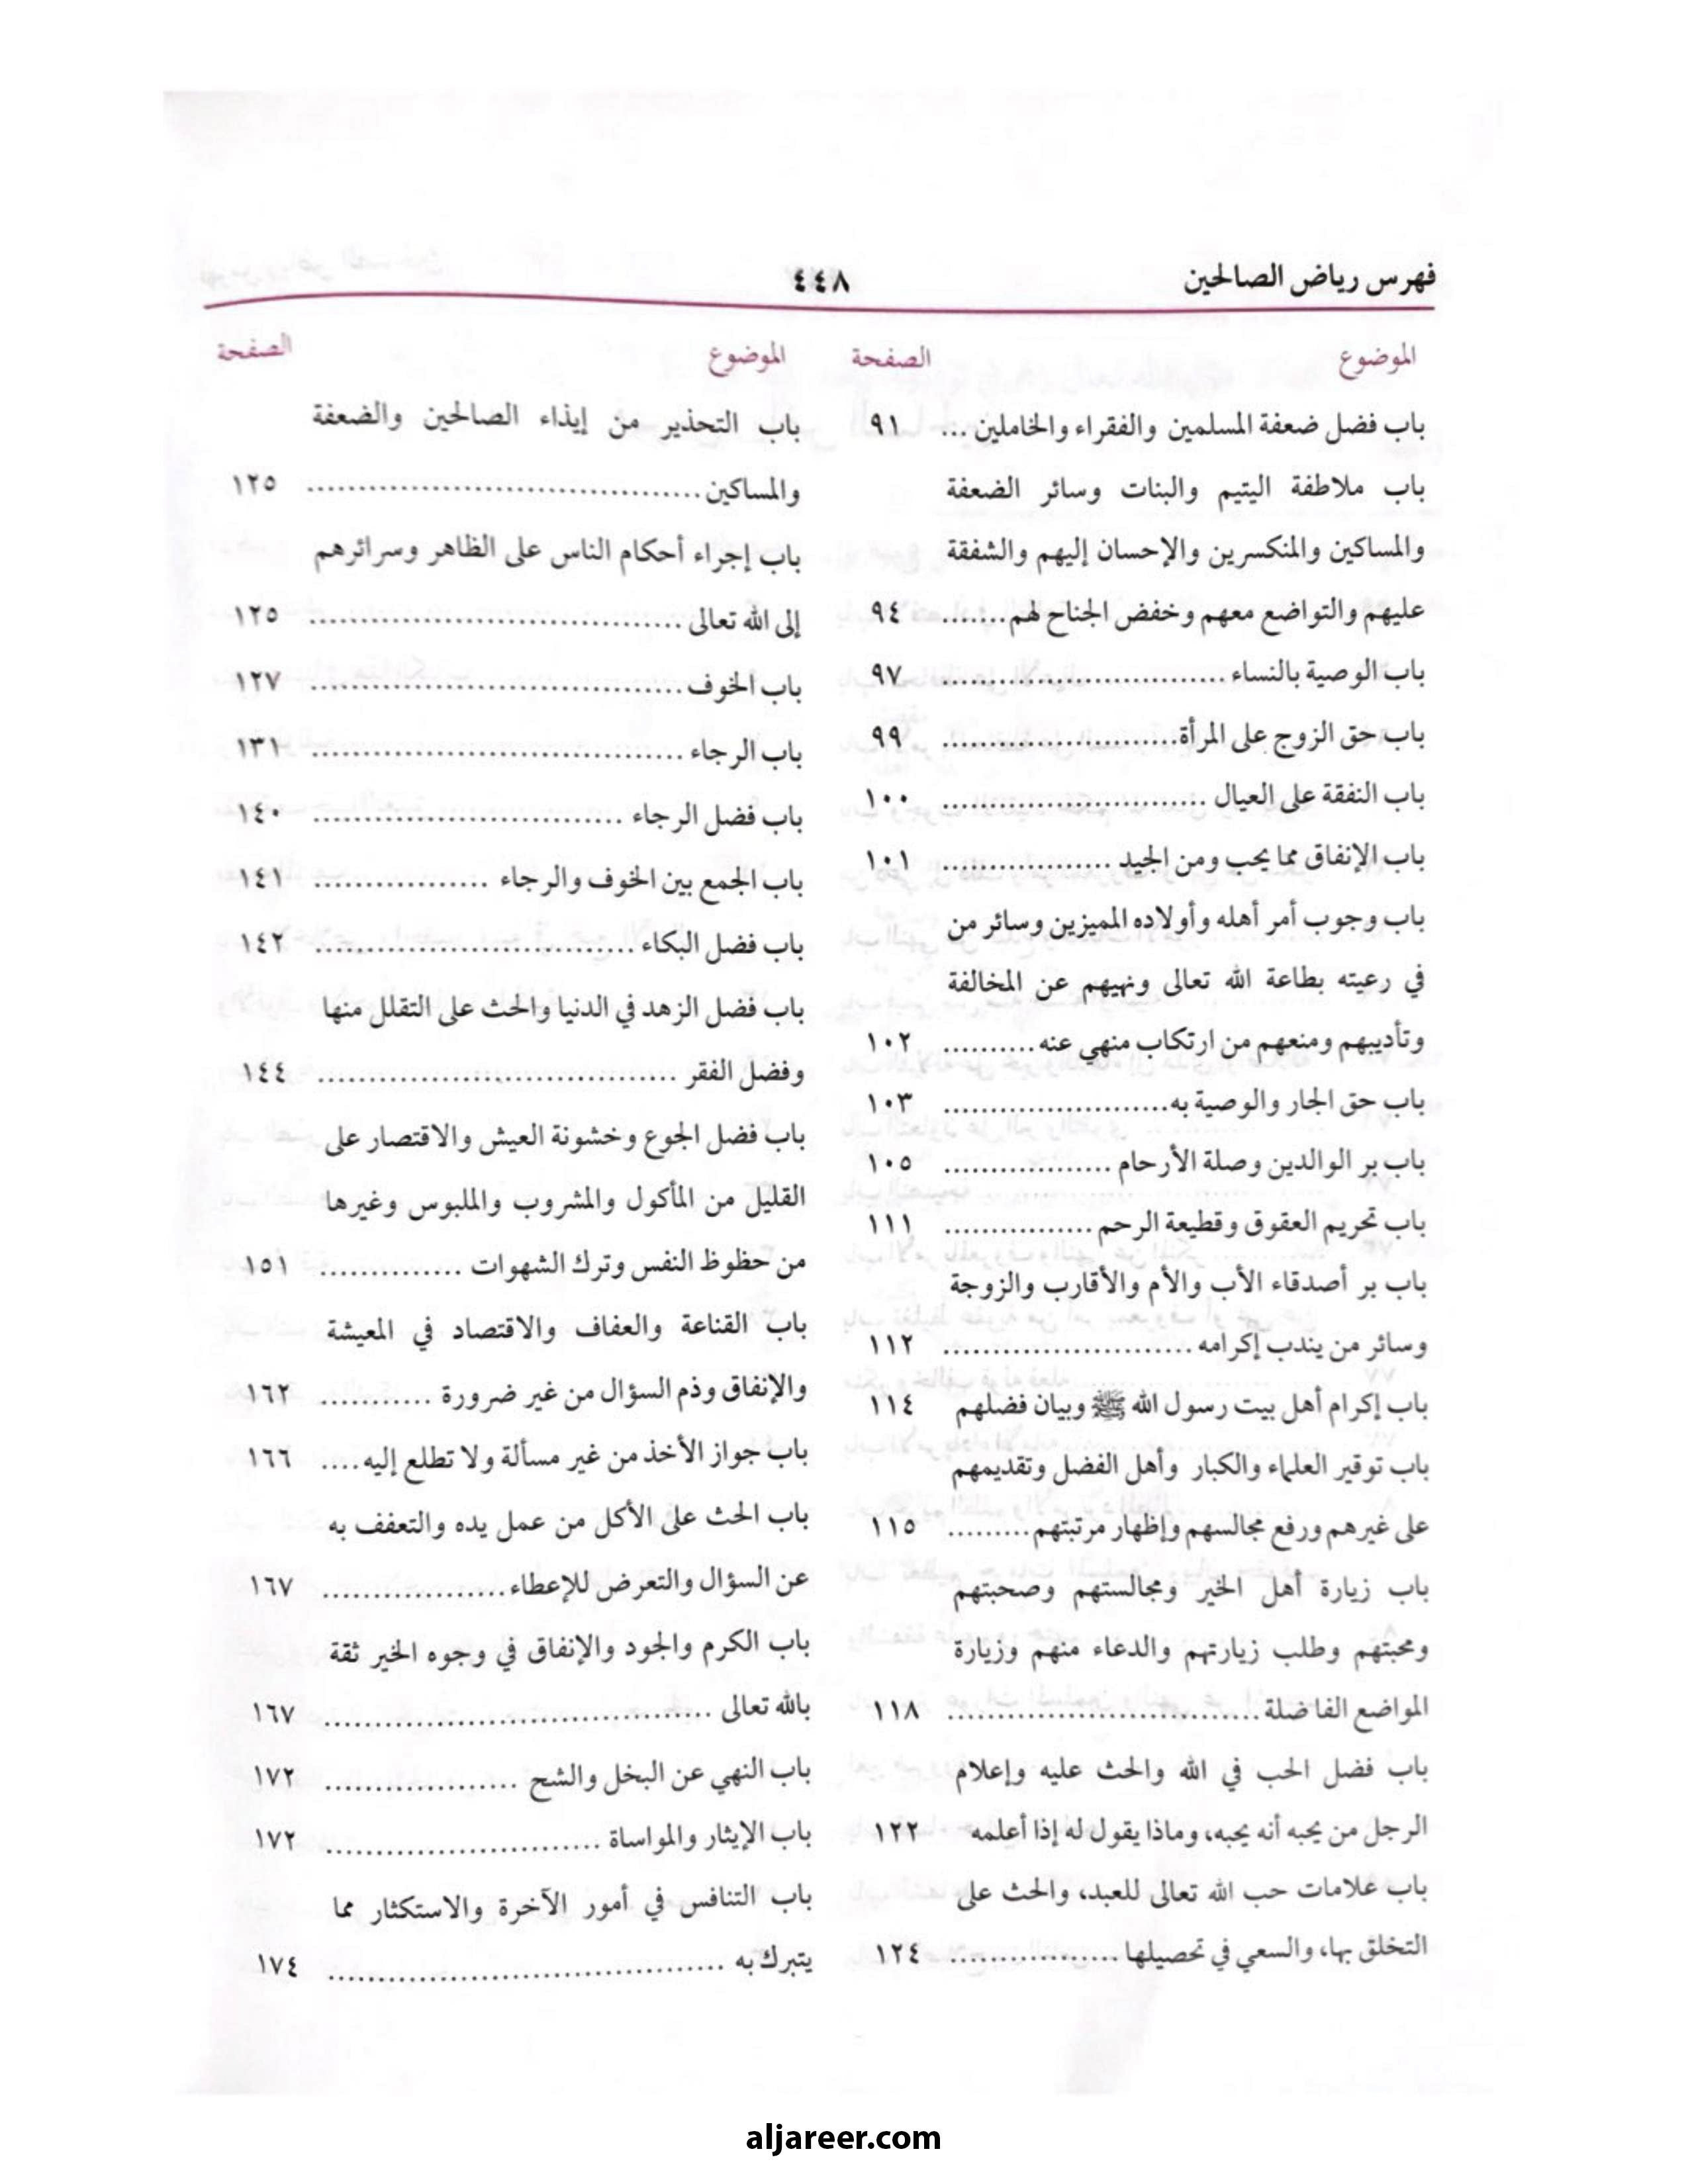 فهرس رياض الصالحين
٤٤٨
الموضوع الصفحة
باب فضل ضعفة المسلمين والفقراء والخاملين ... ٩١
باب ملاطفة اليتيم والبنات وسائر الضعفة
والمساكين والمنكسرين والإحسان إليهم والشفقة
عليهم والتواضع معهم وخفض الجناح لهم ....... ٩٤
باب الوصية بالنساء ............................ ٩٧
باب حق الزوج على المرأة ........................ ٩٩
باب النفقة على العيال .......................... ١٠٠
باب الإنفاق مما يحب ومن الجيد ................. ١٠١
باب وجوب أمر أهله وأولاده المميزين وسائر من
في رعيته بطاعة الله تعالى ونهيهم عن المخالفة
وتأديبهم ومنعهم من ارتكاب منهي عنه .......... ١٠٢
باب حق الجار والوصية به ....................... ١٠٣
باب بر الوالدين وصلة الأرحام ................. ١٠٥
باب تحريم العقوق وقطيعة الرحم ............... ١١١
باب بر أصدقاء الأب والأم والأقارب والزوجة
وسائر من يندب إكرامه ......................... ١١٢
باب إكرام أهل بيت رسول الله ﷺ وبيان فضلهم ١١٤
باب توقير العلماء والكبار وأهل الفضل وتقديمهم
على غيرهم ورفع مجالسهم وإظهار مرتبتهم ......... ١١٥
باب زيارة أهل الخير ومجالستهم وصحبتهم
ومحبتهم وطلب زيارتهم والدعاء منهم وزيارة
المواضع الفاضلة ............................... ١١٨
باب فضل الحب في الله والحث عليه وإعلام
الرجل من يحبه أنه يحبه، وماذا يقول له إذا أعلمه ١٢٢
باب علامات حب الله تعالى للعبد، والحث على
التخلق بها، والسعي في تحصيلها ................. ١٢٤
الموضوع الصفحة
باب التحذير من إيذاء الصالحين والضعفة
والمساكين ...................................... ١٢٥
باب إجراء أحكام الناس على الظاهر وسرائرهم
إلى الله تعالى .................................... ١٢٥
باب الخوف ..................................... ١٢٧
باب الرجاء .................................... ١٣١
باب فضل الرجاء .............................. ١٤٠
باب الجمع بين الخوف والرجاء ................. ١٤١
باب فضل البكاء ............................... ١٤٢
باب فضل الزهد في الدنيا والحث على التقلل منها
وفضل الفقر ................................... ١٤٤
باب فضل الجوع وخشونة العيش والاقتصار على
القليل من المأكول والمشروب والملبوس وغيرها
من حظوظ النفس وترك الشهوات .............. ١٥١
باب القناعة والعفاف والاقتصاد في المعيشة
والإنفاق وذم السؤال من غير ضرورة ........... ١٦٢
باب جواز الأخذ من غير مسألة ولا تطلع إليه .... ١٦٦
باب الحث على الأكل من عمل يده والتعفف به
عن السؤال والتعرض للإعطاء .................. ١٦٧
باب الكرم والجود والإنفاق في وجوه الخير ثقة
بالله تعالى ...................................... ١٦٧
باب النهي عن البخل والشح ................... ١٧٢
باب الإيثار والمواساة ........................... ١٧٢
باب التنافس في أمور الآخرة والاستكثار مما
يتبرك به ....................................... ١٧٤
aljareer.com